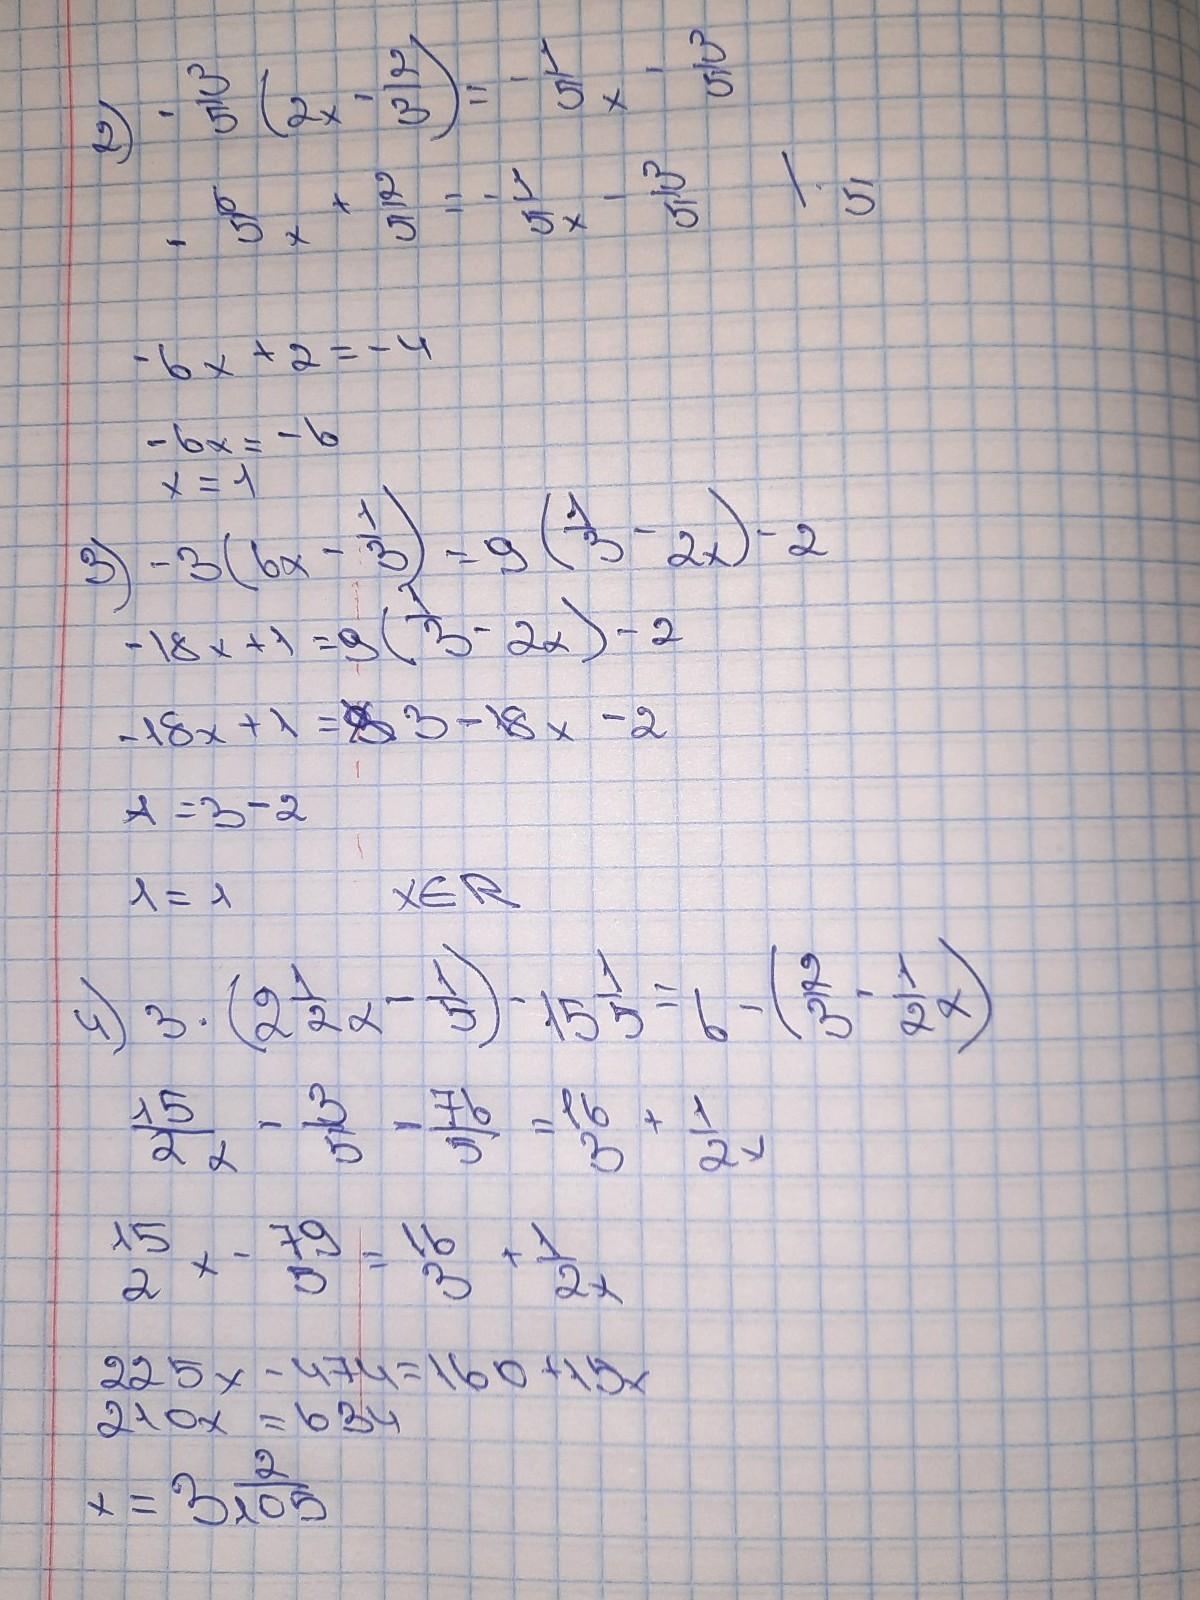 2) -3/5 (2x - 2/3) = -1/5 x - 3/5
-6/5 x + 2/5 = -1/5 x - 3/5 /·5
-6x + 2 = -4
-6x = -6
x = 1
3) -3(6x - 1/3) = 9(1/3 - 2x) - 2
-18x + 1 = 9(1/3 - 2x) - 2
-18x + 1 = 3 - 18x - 2
1 = 3 - 2
1 = 1 x∈R
4) 3·(2 1/2 x - 1/5) - 15 1/5 = 6 - (2/3 - 1/2 x)
15/2 x - 3/5 - 76/5 = 16/3 + 1/2 x
15/2 x - 79/5 = 16/3 + 1/2 x
225x - 474 = 160 + 15x
210x = 634
x = 3 2/105